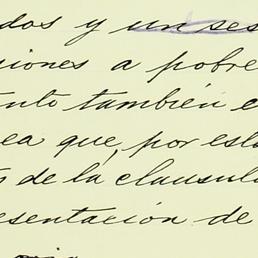 dos y un ses
siones a pobre
nto también e
ea que, por est
s de la clausula
esentación de